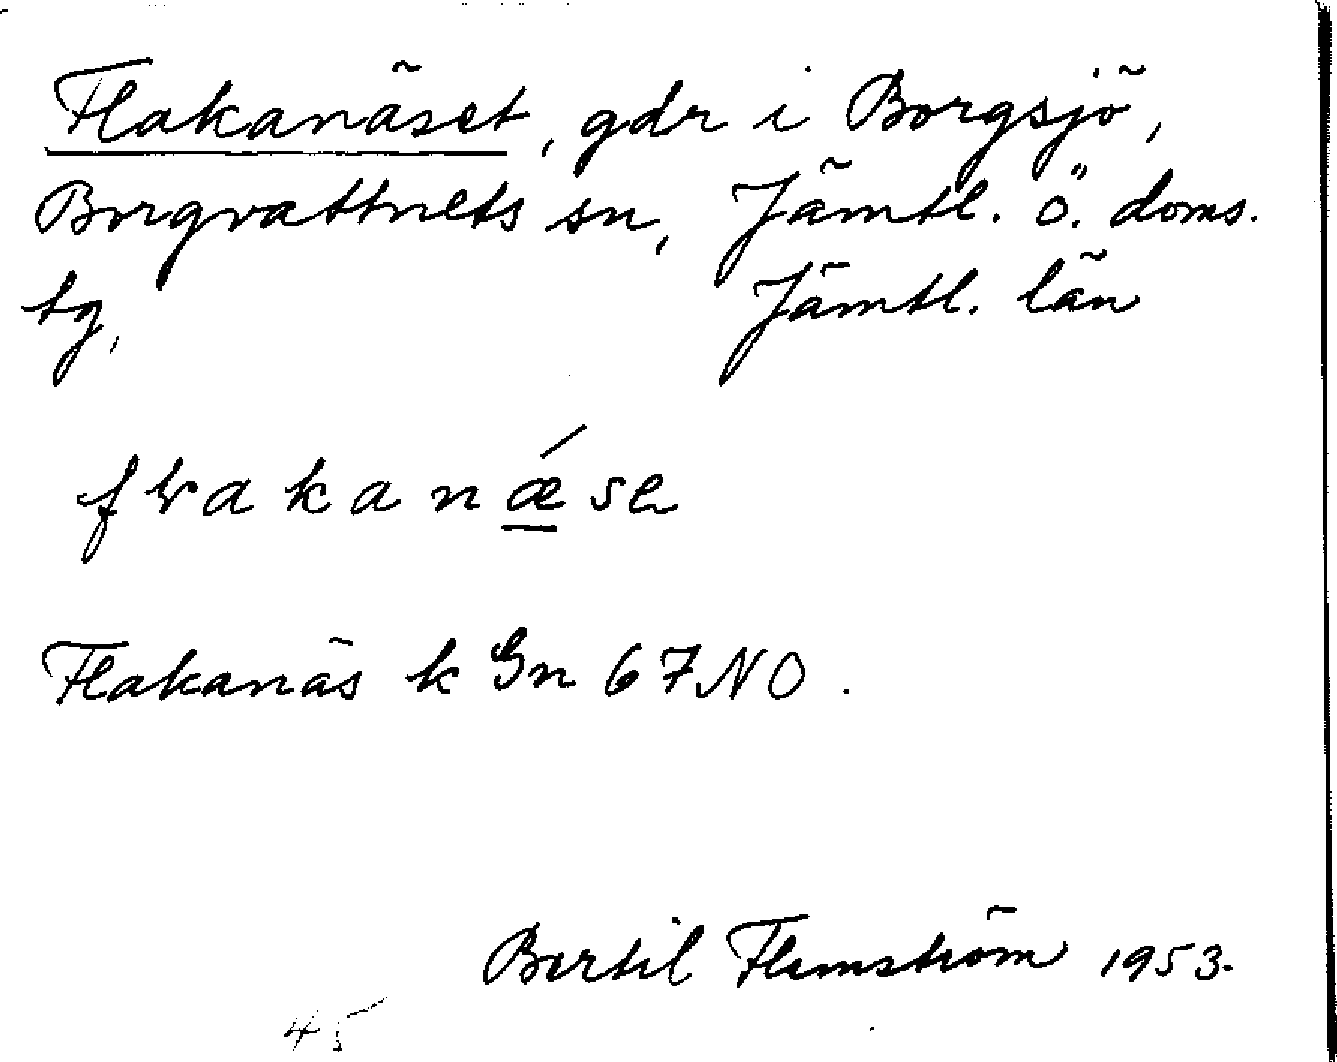 Flakanäset, gdr i Borgsjö,
Borgvattnets sn, Jämtl. ö. doms.
tg, Jämtl. län
Flakanäs k Gn 67 NO.
Bertil Flemström 1953.
45